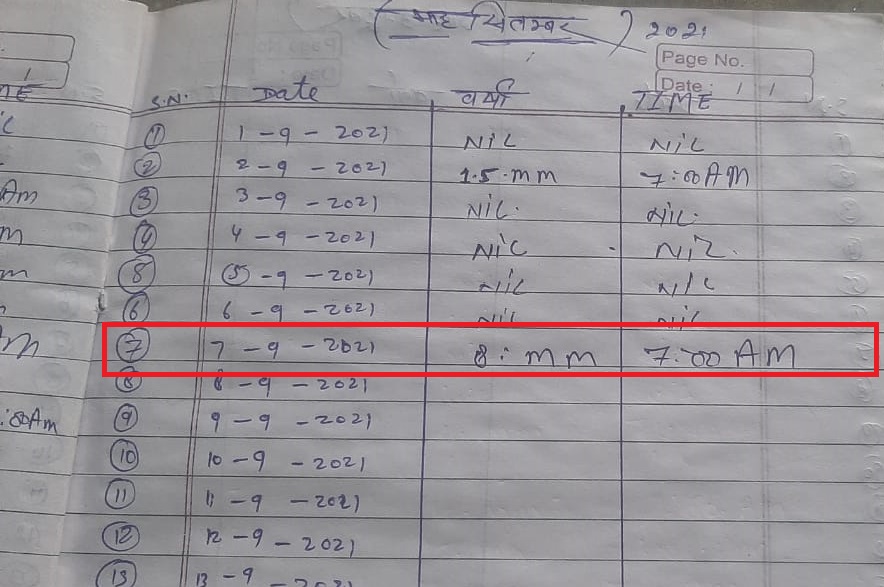 ( माह सितम्बर ) 2021
Page No.
Date : / /
S.N. Date वर्षा TIME
1 1-9-2021 NiL NiL
2 2-9-2021 1.5.mm 7:00AM
3 3-9-2021 NiL. NiL.
4 4-9-2021 NiL NiL.
5-9-2021 NiL NiL
6 6-9-2021 NiL NiL
7 7-9-2021 8: mm 7:00 AM
8 8-9-2021
:00Am 9 9-9-2021
10 10-9-2021
11 11-9-2021
12 12-9-2021
13 13-9-2021